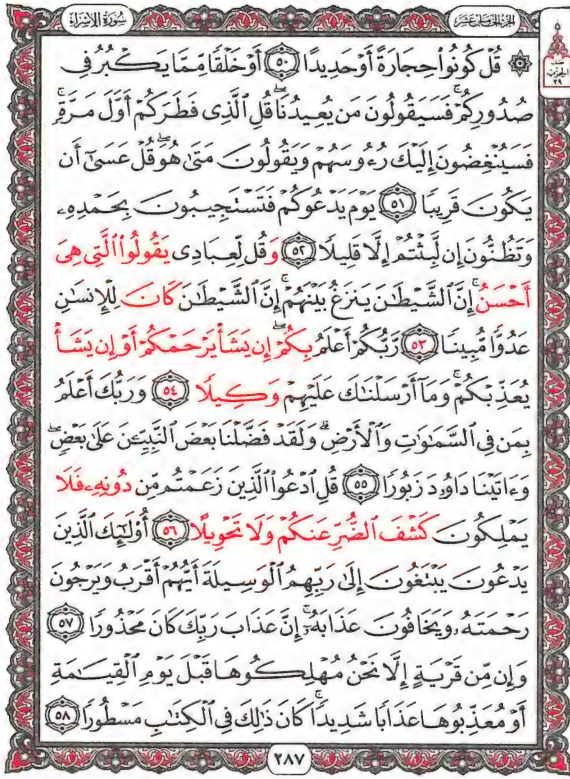 سُورَةُ الإِسْرَاءِ
الجُزْءُ الخَامِسَ عَشَرَ
الحزب
٢٩
۞ قُلْ كُونُوا۟ حِجَارَةً أَوْ حَدِيدًا ٥٠ أَوْ خَلْقًا مِّمَّا يَكْبُرُ فِى
صُدُورِكُمْ ۚ فَسَيَقُولُونَ مَن يُعِيدُنَا ۖ قُلِ ٱلَّذِى فَطَرَكُمْ أَوَّلَ مَرَّةٍ ۚ
فَسَيُنْغِضُونَ إِلَيْكَ رُءُوسَهُمْ وَيَقُولُونَ مَتَىٰ هُوَ ۖ قُلْ عَسَىٰٓ أَن
يَكُونَ قَرِيبًا ٥١ يَوْمَ يَدْعُوكُمْ فَتَسْتَجِيبُونَ بِحَمْدِهِۦ
وَتَظُنُّونَ إِن لَّبِثْتُمْ إِلَّا قَلِيلًا ٥٢ وَقُل لِّعِبَادِى يَقُولُوا۟ ٱلَّتِى هِىَ
أَحْسَنُ ۚ إِنَّ ٱلشَّيْطَـٰنَ يَنزَغُ بَيْنَهُمْ ۚ إِنَّ ٱلشَّيْطَـٰنَ كَانَ لِلْإِنسَـٰنِ
عَدُوًّا مُّبِينًا ٥٣ رَّبُّكُمْ أَعْلَمُ بِكُمْ ۖ إِن يَشَأْ يَرْحَمْكُمْ أَوْ إِن يَشَأْ
يُعَذِّبْكُمْ ۚ وَمَآ أَرْسَلْنَـٰكَ عَلَيْهِمْ وَكِيلًا ٥٤ وَرَبُّكَ أَعْلَمُ
بِمَن فِى ٱلسَّمَـٰوَٰتِ وَٱلْأَرْضِ ۗ وَلَقَدْ فَضَّلْنَا بَعْضَ ٱلنَّبِيِّـۧنَ عَلَىٰ بَعْضٍ ۖ
وَءَاتَيْنَا دَاوُۥدَ زَبُورًا ٥٥ قُلِ ٱدْعُوا۟ ٱلَّذِينَ زَعَمْتُم مِّن دُونِهِۦ فَلَا
يَمْلِكُونَ كَشْفَ ٱلضُّرِّ عَنكُمْ وَلَا تَحْوِيلًا ٥٦ أُو۟لَـٰٓئِكَ ٱلَّذِينَ
يَدْعُونَ يَبْتَغُونَ إِلَىٰ رَبِّهِمُ ٱلْوَسِيلَةَ أَيُّهُمْ أَقْرَبُ وَيَرْجُونَ
رَحْمَتَهُۥ وَيَخَافُونَ عَذَابَهُۥٓ ۚ إِنَّ عَذَابَ رَبِّكَ كَانَ مَحْذُورًا ٥٧
وَإِن مِّن قَرْيَةٍ إِلَّا نَحْنُ مُهْلِكُوهَا قَبْلَ يَوْمِ ٱلْقِيَـٰمَةِ
أَوْ مُعَذِّبُوهَا عَذَابًا شَدِيدًا ۚ كَانَ ذَٰلِكَ فِى ٱلْكِتَـٰبِ مَسْطُورًا ٥٨
٢٨٧